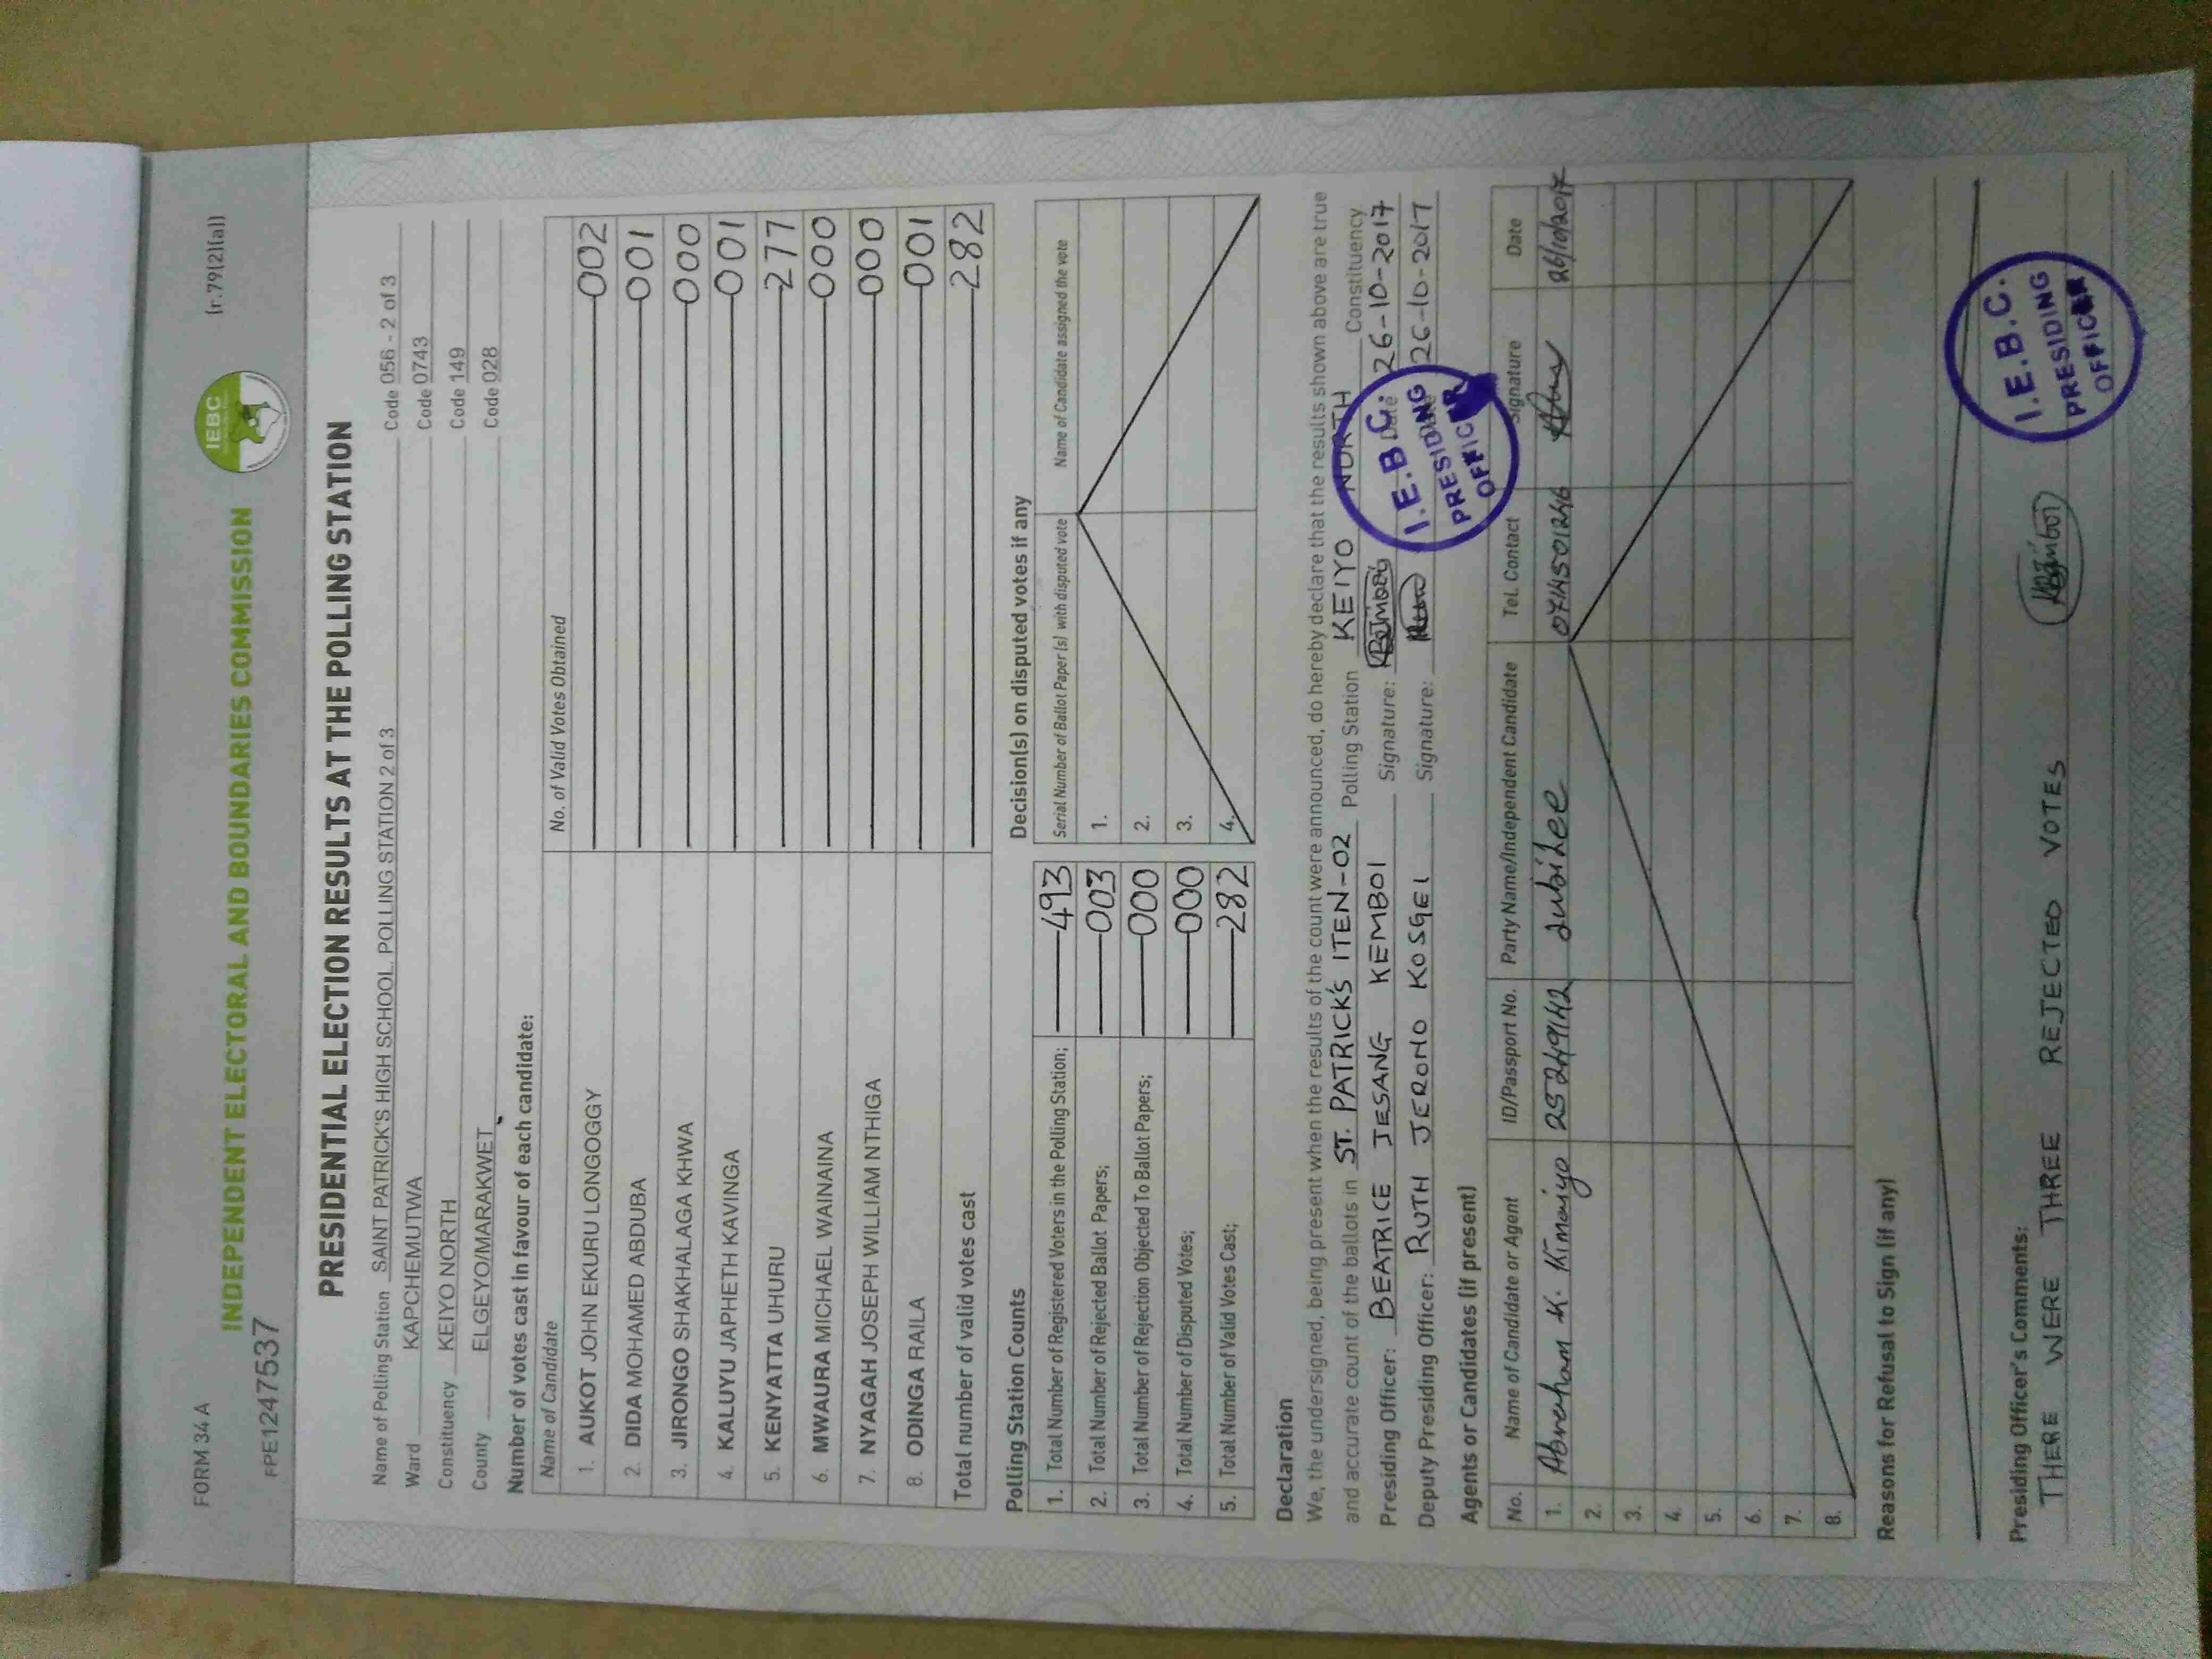 FORM 34 A
(r.79(2)(a))
IEBC
INDEPENDENT ELECTORAL AND BOUNDARIES COMMISSION
FPE1247537
PRESIDENTIAL ELECTION RESULTS AT THE POLLING STATION
Name of Polling Station SAINT PATRICK'S HIGH SCHOOL, POLLING STATION 2 of 3 Code 056 - 2 of 3
Ward KAPCHEMUTWA Code 0743
Constituency KEIYO NORTH Code 149
County ELGEYO/MARAKWET Code 028
Number of votes cast in favour of each candidate:
Name of Candidate No. of Valid Votes Obtained
1. AUKOT JOHN EKURU LONGOGGY 002
2. DIDA MOHAMED ABDUBA 001
3. JIRONGO SHAKHALAGA KHWA 000
4. KALUYU JAPHETH KAVINGA 001
5. KENYATTA UHURU 277
6. MWAURA MICHAEL WAINAINA 000
7. NYAGAH JOSEPH WILLIAM NTHIGA 000
8. ODINGA RAILA 001
Total number of valid votes cast 282
Polling Station Counts
1. Total Number of Registered Voters in the Polling Station; 493
2. Total Number of Rejected Ballot Papers; 003
3. Total Number of Rejection Objected To Ballot Papers; 000
4. Total Number of Disputed Votes; 000
5. Total Number of Valid Votes Cast; 282
Decision(s) on disputed votes if any
Serial Number of Ballot Paper (s) with disputed vote Name of Candidate assigned the vote
1.
2.
3.
4.
Declaration
We, the undersigned, being present when the results of the count were announced, do hereby declare that the results shown above are true
and accurate count of the ballots in ST. PATRICK'S ITEN-02 Polling Station KEIYO NORTH Constituency
Presiding Officer: BEATRICE JESANG KEMBOI Signature: Date 26-10-2017
Deputy Presiding Officer: RUTH JERONO KOSGEI Signature: 26-10-2017
I.E.B.C.
PRESIDING
OFFICER
Agents or Candidates (if present)
No. Name of Candidate or Agent ID/Passport No. Party Name/Independent Candidate Tel. Contact Signature Date
1. Abraham K. Kimaiyo 25249142 Jubilee 0714501246 26/10/2017
2.
3.
4.
5.
6.
7.
8.
Reasons for Refusal to Sign (if any)
Presiding Officer's Comments:
THERE WERE THREE REJECTED VOTES
I.E.B.C.
PRESIDING
OFFICER